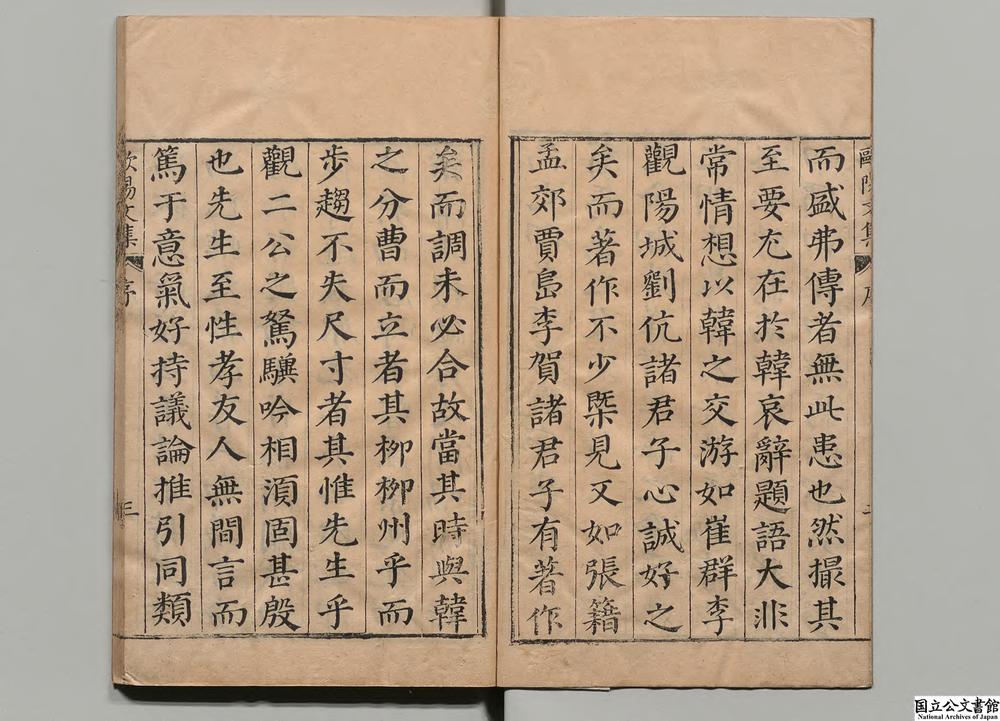 而盛弗傳者無此患也然撮其
至要尤在於韓哀辭題語大非
常情想以韓之交游如崔群李
觀陽城劉伉諸君子心誠好之
矣而著作不少槩見又如張籍
孟郊賈島李賀諸君子有著作
矣而調未必合故當其時與韓
之分曹而立者其柳柳州乎而
步趨不失尺寸者其惟先生乎
觀二公之駑驥吟相湏固甚殷
也先生至性孝友人無間言而
篤于意氣好持議論推引同類
歐陽文集
序
三
国立公文書館
National Archives of Japan